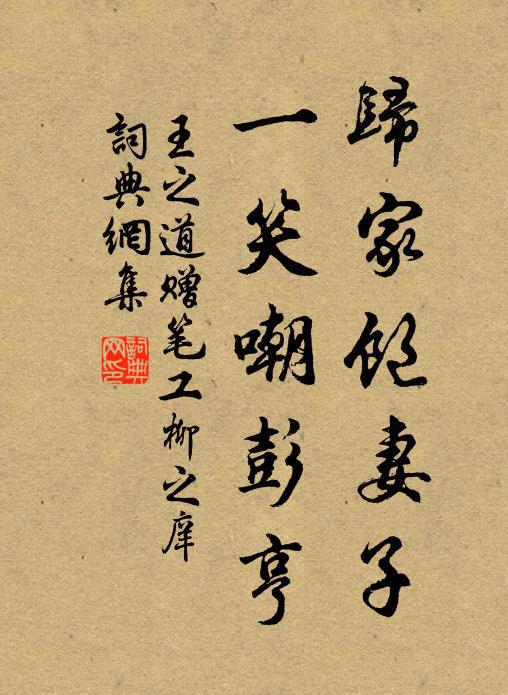 歸家飽妻子
一笑嘲彭亨
王之道赠笔工柳之庠
詞典網集
詞典网印